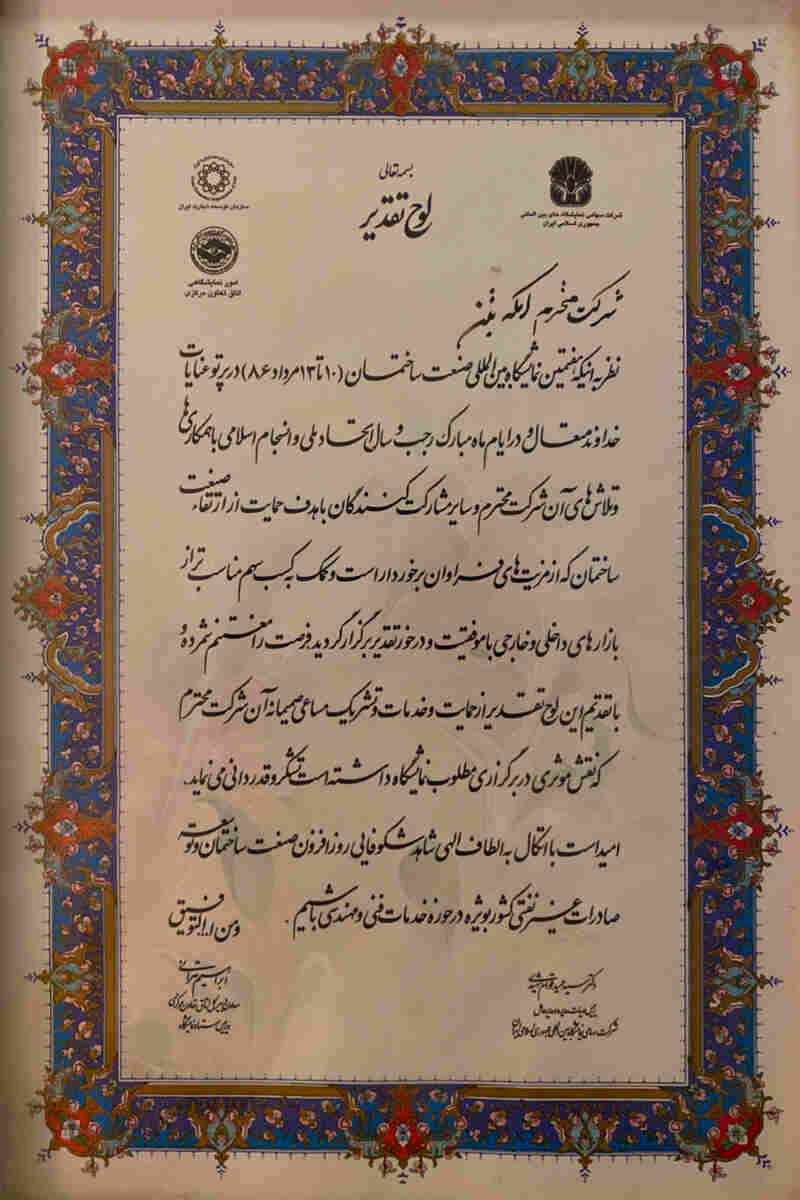 بسمه تعالی
لوح تقدیر
سازمان توسعه تجارت ایران
امور نمایشگاهی
اتاق تعاون مرکزی
شرکت سهامی نمایشگاه های بین المللی
جمهوری اسلامی ایران
شرکت محترم
نظر به اینکه هفتمین نمایشگاه بین المللی صنعت ساختمان (۱۰ تا ۱۳ مرداد ۸۶) در پرتو عنایات
خداوند متعال و در ایام ماه مبارک رجب و سال اتحاد ملی و انسجام اسلامی با همکاری ها
و تلاش های آن شرکت محترم و سایر مشارکت کنندگان با هدف حمایت از ارتقاء صنعت
ساختمان که از مزیت های فراوان برخوردار است و کمک به کسب سهم مناسب تر از
بازارهای داخلی و خارجی با موفقیت و درخور تقدیر برگزار گردید فرصت را مغتنم شمرده و
با تقدیم این لوح تقدیر از حمایت و خدمات و تشریک مساعی صمیمانه آن شرکت محترم
که نقش موثری در برگزاری مطلوب نمایشگاه داشته است تشکر و قدردانی می نماید.
امید است با اتکال به الطاف الهی شاهد شکوفایی روزافزون صنعت ساختمان و توسعه
صادرات غیر نفتی کشور بویژه در حوزه خدمات فنی و مهندسی باشیم.
و من ا... التوفیق
دکتر سید حمید
رئیس هیات مدیره و مدیر عامل
شرکت سهامی نمایشگاههای بین المللی جمهوری اسلامی ایران
ابراهیم